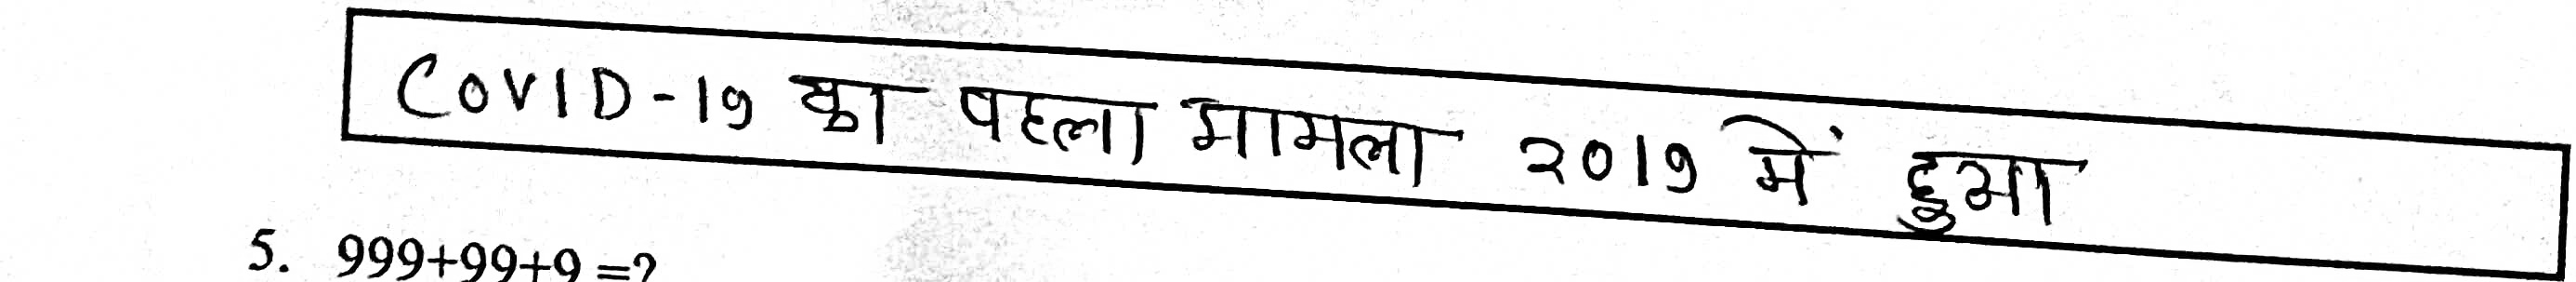 COVID-19 का पहला मामला 2019 में हुआ
5. 999+99+9 =?